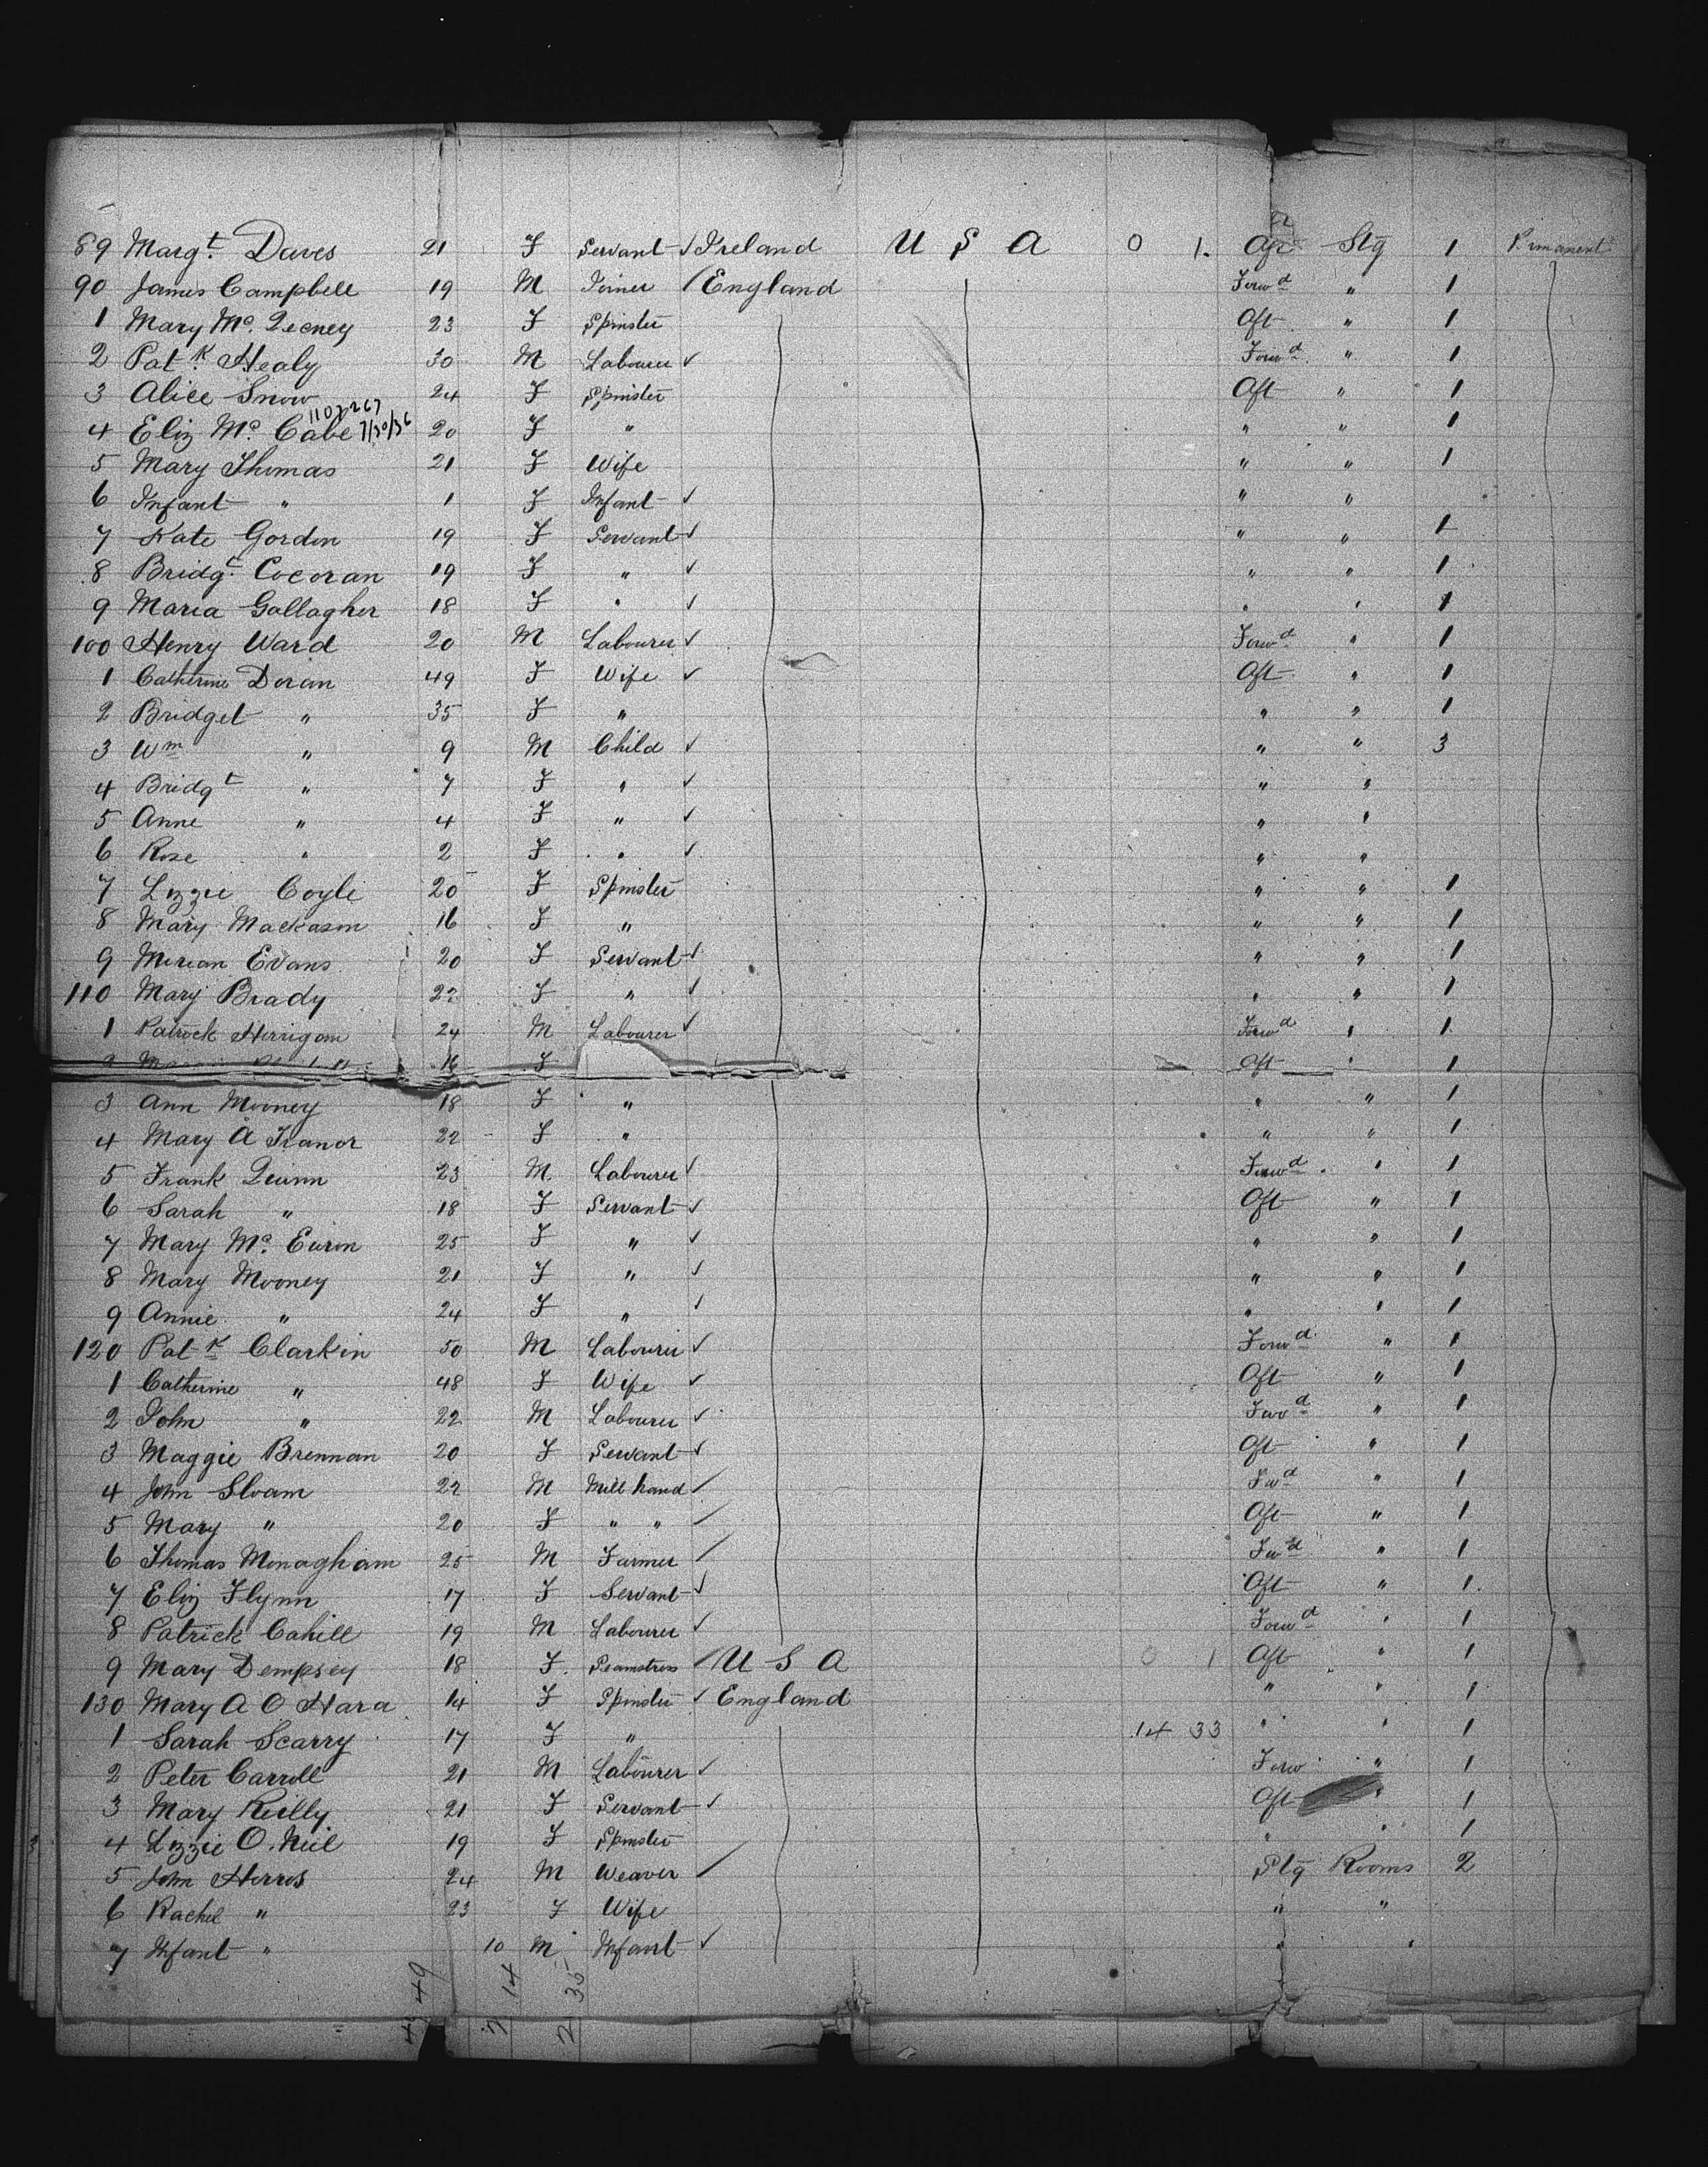 89 Margt. Daves 21 F Servant ✓ Ireland U S A 0 1. Aft Stg 1 Permanent
90 James Campbell 19 M Joiner / England Forwd " 1
1 Mary Mc. Qeeney 23 F Spinster Aft " 1
2 Patk. Healy 30 M Labourer ✓ Forwd " 1
3 Alice Snow 24 F Spinster Aft " 1
4 Eliz Mc. Cabe 7/30/36 20 F " " " 1
5 Mary Thomas 21 F Wife " " 1
6 Infant " 1 F Infant ✓ " "
7 Kate Gordon 19 F Servant ✓ " " 1
8 Bridgt. Cocoran 19 F " ✓ " " 1
9 Maria Gallagher 18 F " ✓ " " 1
100 Henry Ward 20 M Labourer ✓ Forwd " 1
1 Catherine Doran 49 F Wife ✓ Aft " 1
2 Bridget " 35 F " " " 1
3 Wm " 9 M Child ✓ " " 3
4 Bridgt " 7 F " ✓ " "
5 Anne " 4 F " ✓ " "
6 Rose " 2 F " ✓ " "
7 Lizzie Coyle 20 F Spinster " " 1
8 Mary Mackason 16 F " " " 1
9 Mirian Evans 20 F Servant ✓ " " 1
110 Mary Brady 22 F " ✓ " " 1
1 Patrick Herrigan 24 M Labourer ✓ Forwd " 1
2 16 F Aft " 1
3 Ann Mooney 18 F " " " 1
4 Mary A Tranor 22 F " " " 1
5 Frank Quinn 23 M Labourer ✓ Forwd " 1
6 Sarah " 18 F Servant ✓ Aft " 1
7 Mary Mc. Euron 25 F " ✓ " " 1
8 Mary Mooney 21 F " ✓ " " 1
9 Annie " 24 F " ✓ " " 1
120 Patk Clarkin 50 M Labourer ✓ Forwd " 1
1 Catherine " 48 F Wife ✓ Aft " 1
2 John " 22 M Labourer ✓ Forwd " 1
3 Maggie Brennan 20 F Servant ✓ Aft " 1
4 John Sloam 22 M Mill hand / Fwd " 1
5 Mary " 20 F " " / Aft " 1
6 Thomas Monagham 25 M Farmer / Fwd " 1
7 Eliz Flynn 17 F Servant ✓ Aft " 1
8 Patrick Cahill 19 M Labourer ✓ Forwd " 1
9 Mary Dempsey 18 F. Seamstress / U S A 0 1 Aft " 1
130 Mary A O Hara 14 F Spinster ✓ England " " 1
1 Sarah Scarry 17 F " 14 33 " " 1
2 Peter Carroll 21 M Labourer ✓ Forw " 1
3 Mary Reilly 21 F Servant ✓ Aft " 1
4 Lizzie O. Neil 19 F Spinster " " 1
5 John Herros 24 M Weaver / Stg Rooms 2
6 Rachel " 23 F Wife " "
7 Infant " 10 M Infant ✓ " "
49 14 35